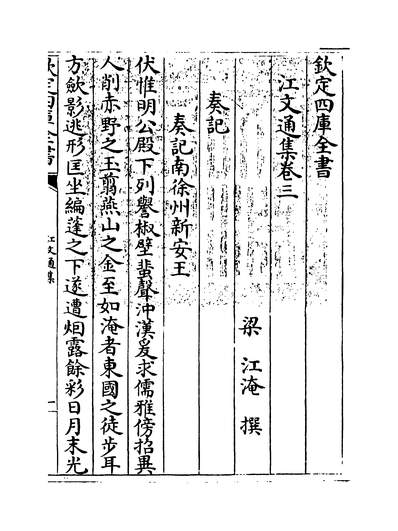 欽定四庫全書
江文通集卷三
梁 江淹 撰
奏記
奏記南徐州新安王
伏惟明公殿下列譽椒壁蜚聲沖漢爰求儒雅傍招異
人削赤野之玉翦燕山之金至如淹者東國之徒步耳
方斂影逃形匡坐編蓬之下遂遭烟露餘彩日月末光
欽定四庫全書
江文通集